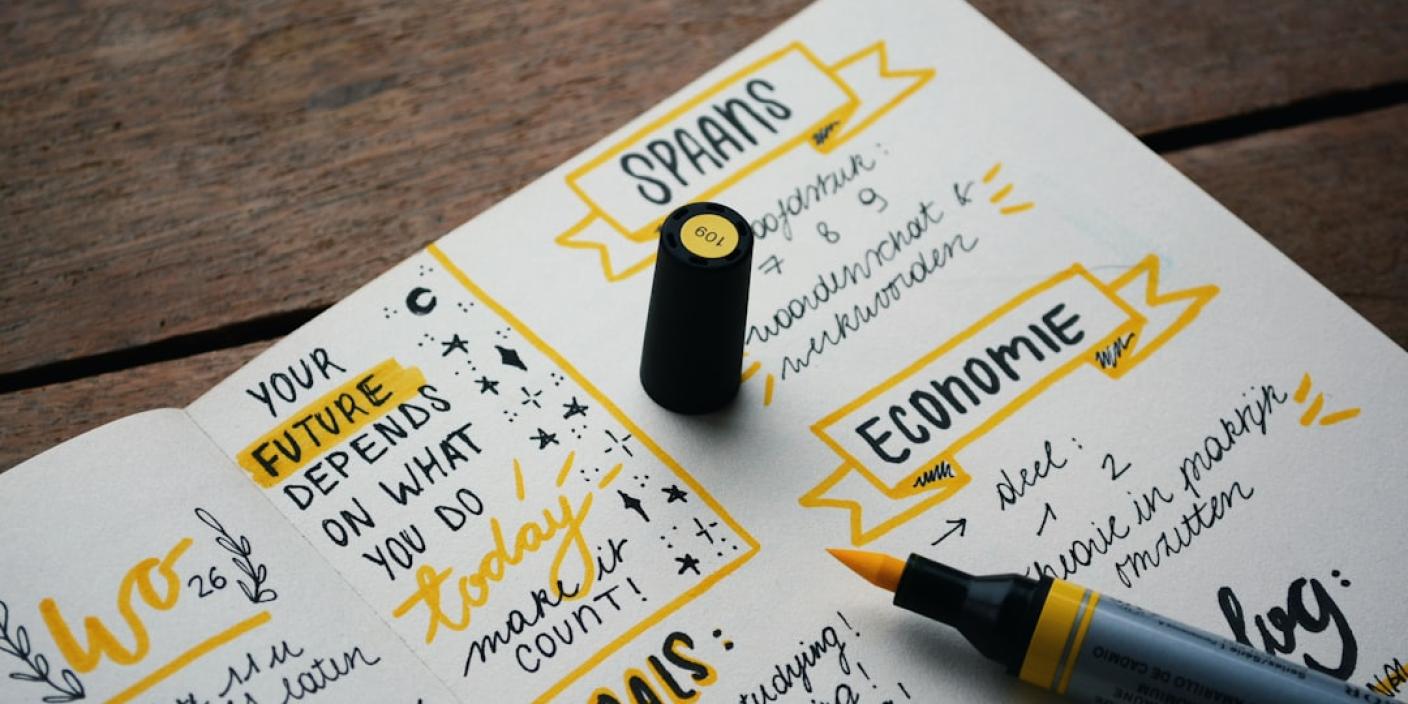 Wo
26
11 u
laten
YOUR
FUTURE
DEPENDS
ON WHAT
YOU DO
today
make it
COUNT!
SPAANS
oofdstuk:
7 8 9
woordenschat &
werkwoorden
ECONOMIE
→ deel:
1 2
theorie in praktijk
omzetten
ALS:
tudying!
log:
109
AMARILLO DE CADMIO